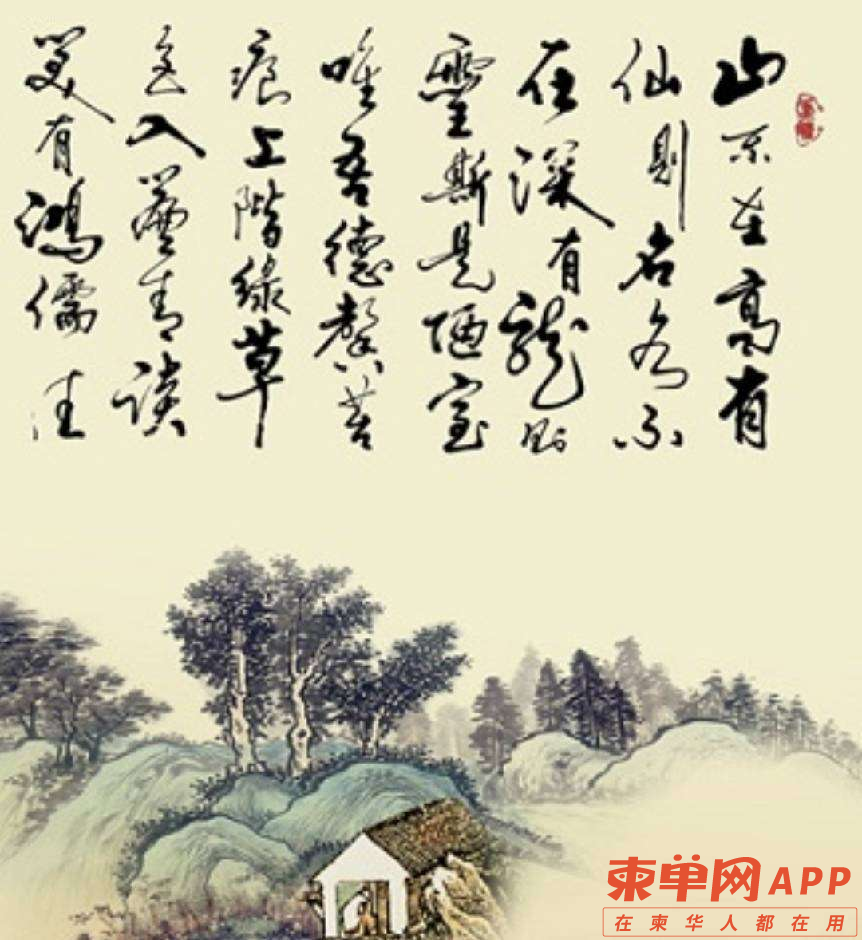 山不在高有
仙則名水不
在深有龍則
靈斯是陋室
唯吾德馨苔
痕上階綠草
色入簾青談
笑有鴻儒往
柬单网APP
在柬华人都在用